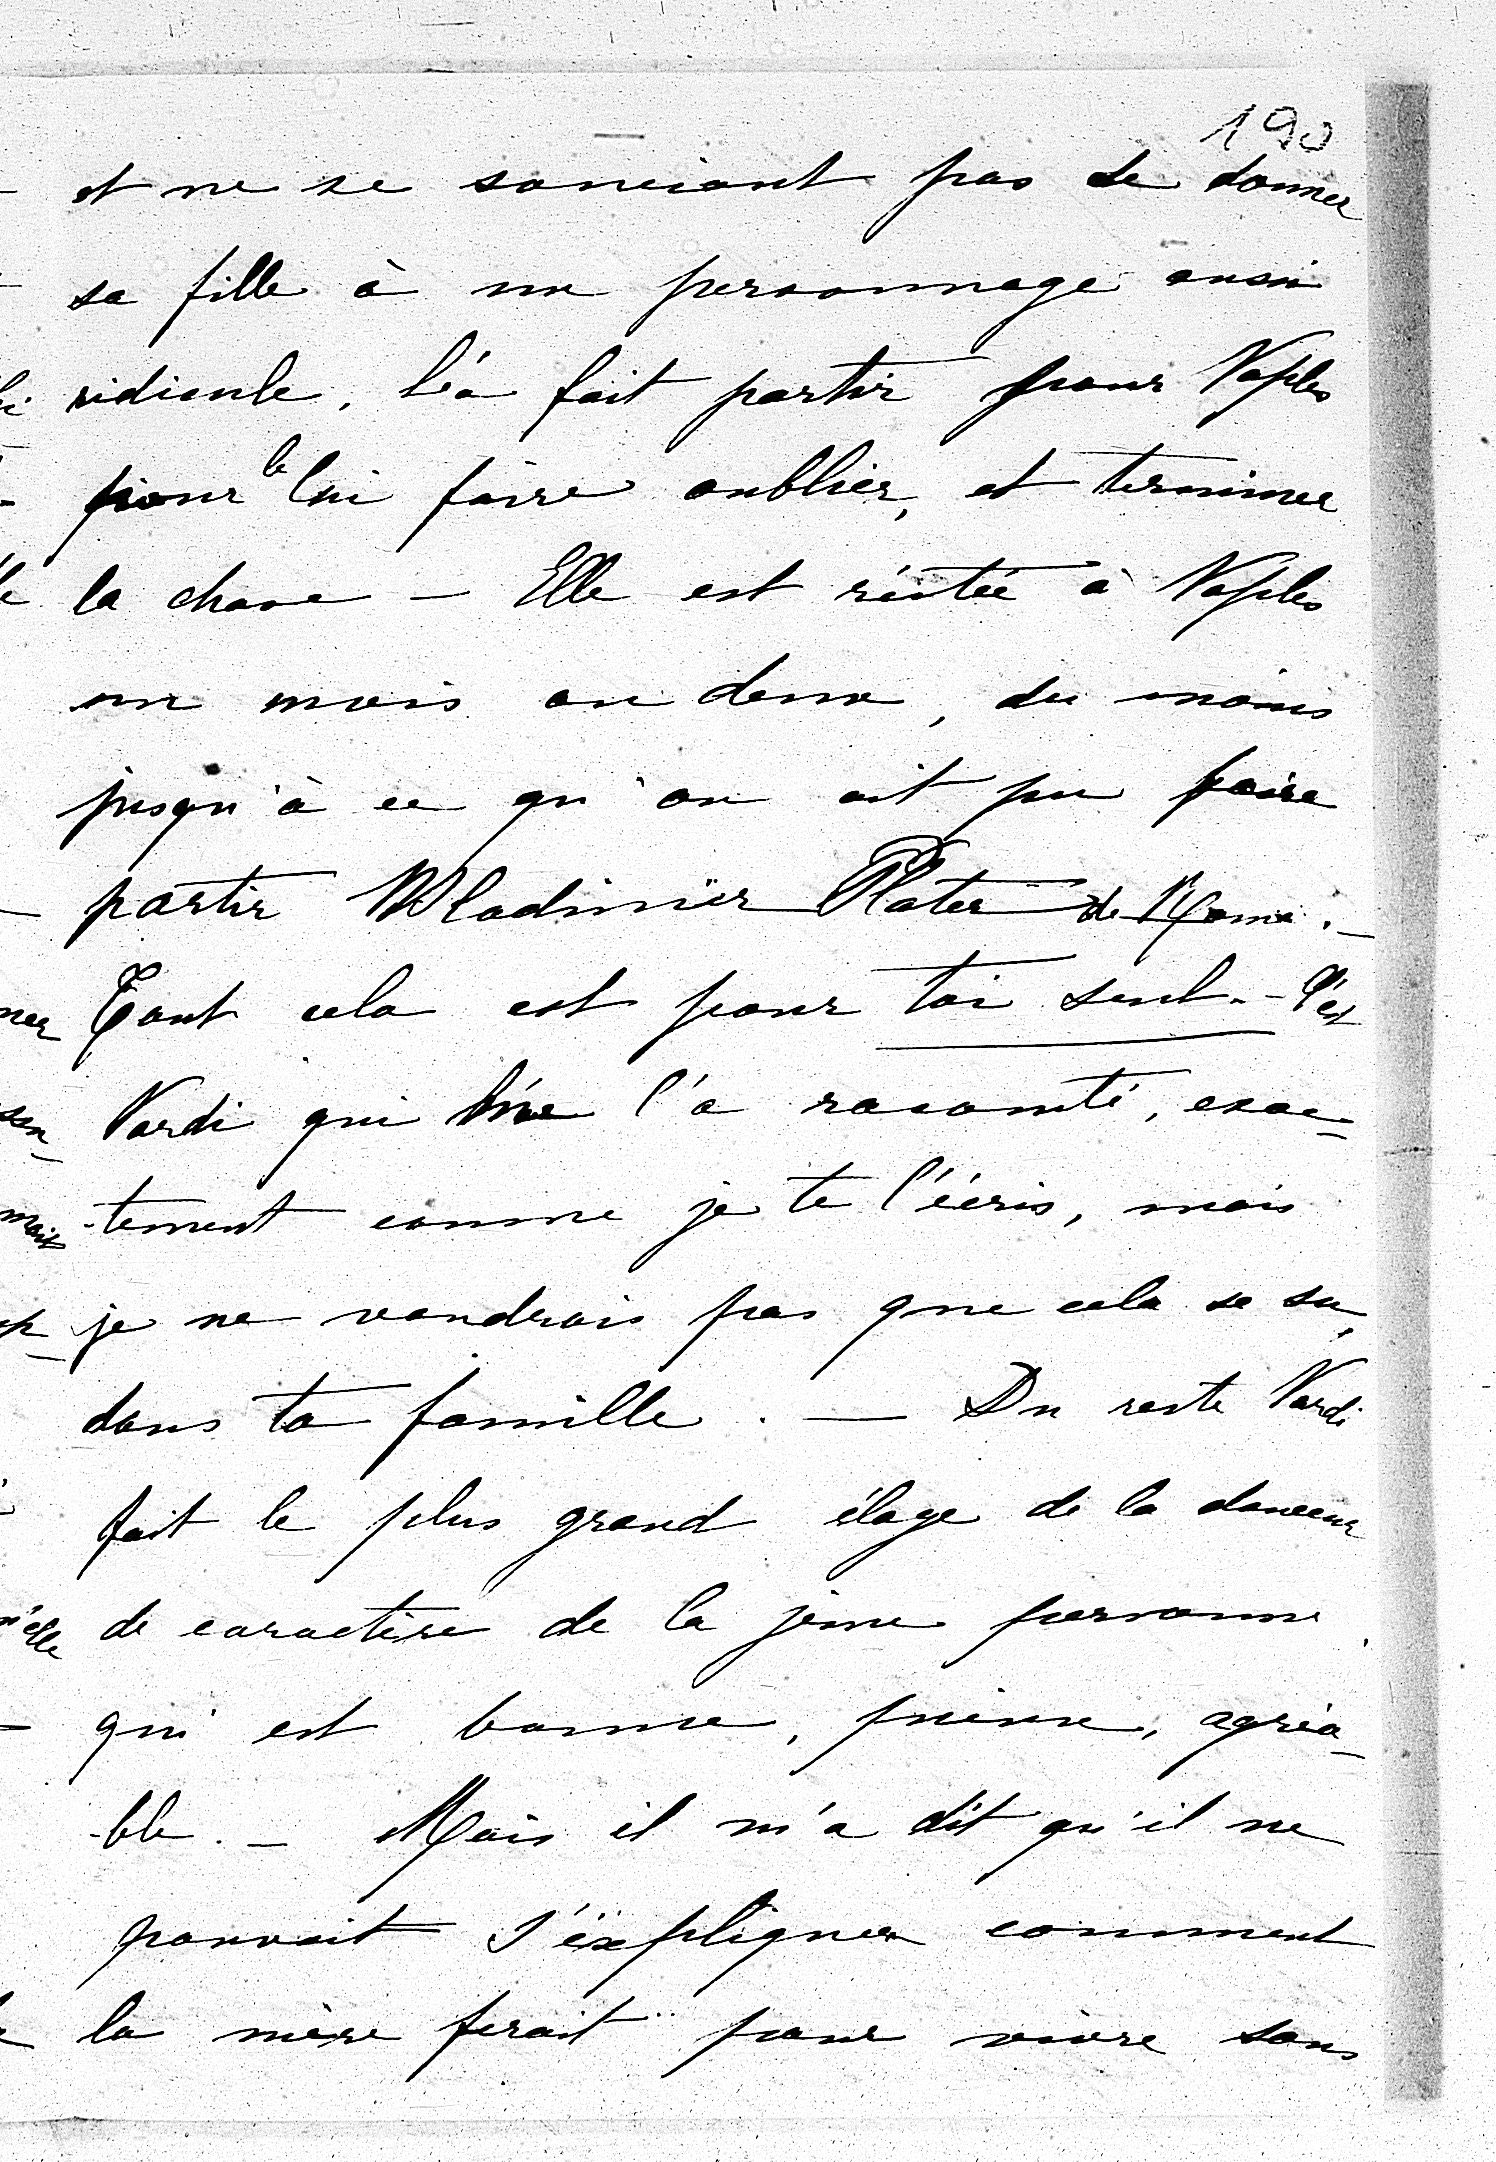 190
et ne se souciant pas de donner
sa fille à un personnage aussi
ridicule, l'a fait partir pour Naples
pour le lui faire oublier, et terminer
la chose — Elle est réstée à Naples
un mois ou deux, du moins
jusqu'à ce qu'on ait pu faire
partir Wladimir Plater de Rome. —
Tout cela est pour toi seul. — C'est
Nardi qui me l'a raconté, exac-
-tement comme je te l'écris, mais
je ne voudrais pas que cela se su,
dans ta famille. — Du reste Nardi
fait le plus grand éloge de la douceur
de caractère de la jeune personne,
qui est bonne, pieuse, agréa-
-ble. — Mais il m'a dit qu'il ne
pouvait s'éxpliquer comment
la mère ferait pour vivre sans